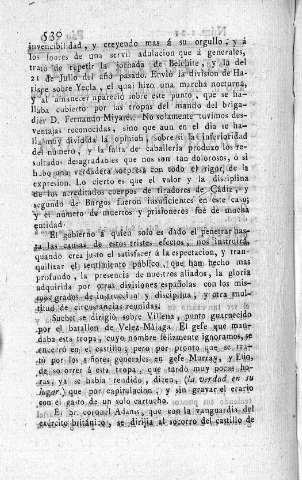 539
invencibilidad, y creyendo mas á su orgullo, y á
los loores de una servil adulacion que á generales,
trató de repetir la jornada de Belchite, y la del
21 de Julio del año pasado. Envió la division de Ha-
rispe sobre Yecla, el qual hizo una marcha nocturna,
y al amanecer apareció sobre este punto, que se ha-
llaba cubierto por las tropas del mando del brigadi-
er D. Fernando Miyares. No solamente tuvimos des-
ventajas reconocidas, sino que aun en el dia se ha-
lla muy dividida la opinion, sobre si la inferioridad
del número, y la falta de caballería produxo los re-
sultados desagradables que nos son tan dolorosos, ó si
hubo una verdadera sorpresa con todo el rigor de la
expresion. Lo cierto es que el valor y la disciplina
de los acreditados cuerpos de tiradores de Cádiz, y
segundo de Burgos fueron insuficientes en este caso;
y el número de muertos y prisioneros fué de mucha
entidad.
El gobierno á quien solo es dado el penetrar has-
ta las causas de estos tristes efectos, nos instruirá,
quando crea justo el satisfacer á la espectacion, y tran-
quilizar el sentimiento público, que han hecho mas
profundo, la presencia de nuestros aliados, la gloria
adquirida por otras divisiones españolas con los mis-
mos grados de instruccion y disciplina, y otra mul-
titud de circunstancias reunidas.
Suchet se dirigió sobre Villena, punto guarnecido
por el batallon de Velez-Málaga. El gefe que man-
daba esta tropa, cuyo nombre felizmente ignoramos, se
encerró en el castillo; pero por pronto que se tra-
tó por los señores generales en gefe Murray, y Elío,
de socorrer á esta tropa, que tandó muy pocas ho-
ras, ya se habia rendido, dicen, (la verdad en su
lugar) que por capitulacion, y sin gravar el erario
con el gasto de un solo cartucho.
El Sr. coronel Adams, que con la vanguardia del
exército británico, se dirijia al socorro del castillo de